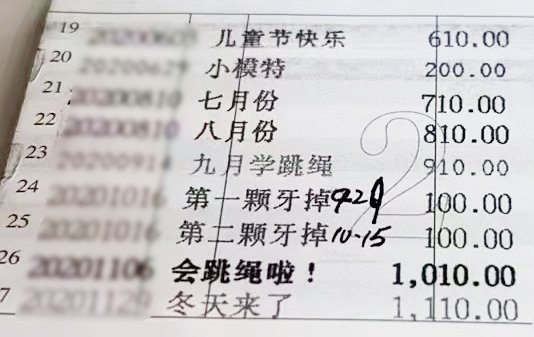 19 儿童节快乐 610.00
20 20200629 小模特 200.00
21 20200810 七月份 710.00
22 20200810 八月份 810.00
23 20200914 九月学跳绳 910.00
24 20201016 第一颗牙掉 100.00
25 20201016 第二颗牙掉10-15 100.00
26 20201106 会跳绳啦！ 1,010.00
7 20201129 冬天来了 1,110.00
2